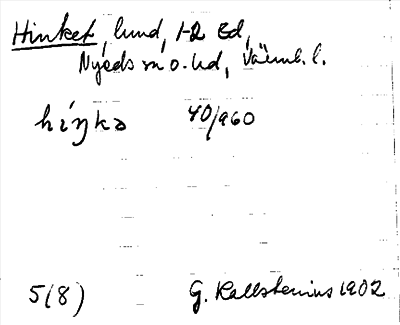 Hinket, lund, 1-2 Bd,
Nyeds sn o. hd, Värml. l.
híŋkə 40/960
5(8) G. Kallstenius 1902